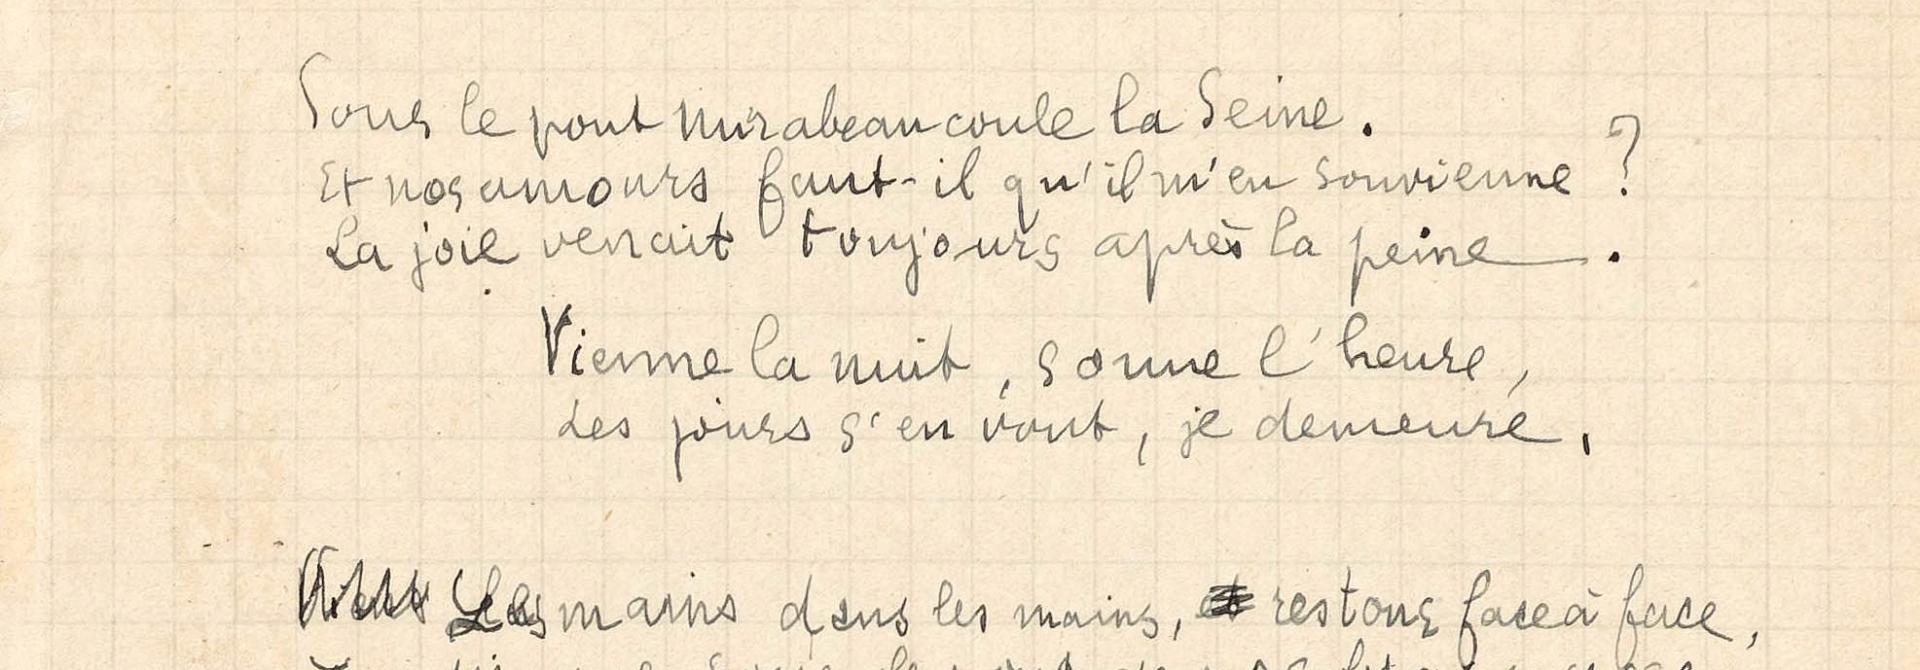 Sous le pont Mirabeau coule la Seine.
Et nos amours faut-il qu'il m'en souvienne ?
La joie venait toujours après la peine.
Vienne la nuit, sonne l'heure,
Les jours s'en vont, je demeure.
Les mains dans les mains, et restons face à face,